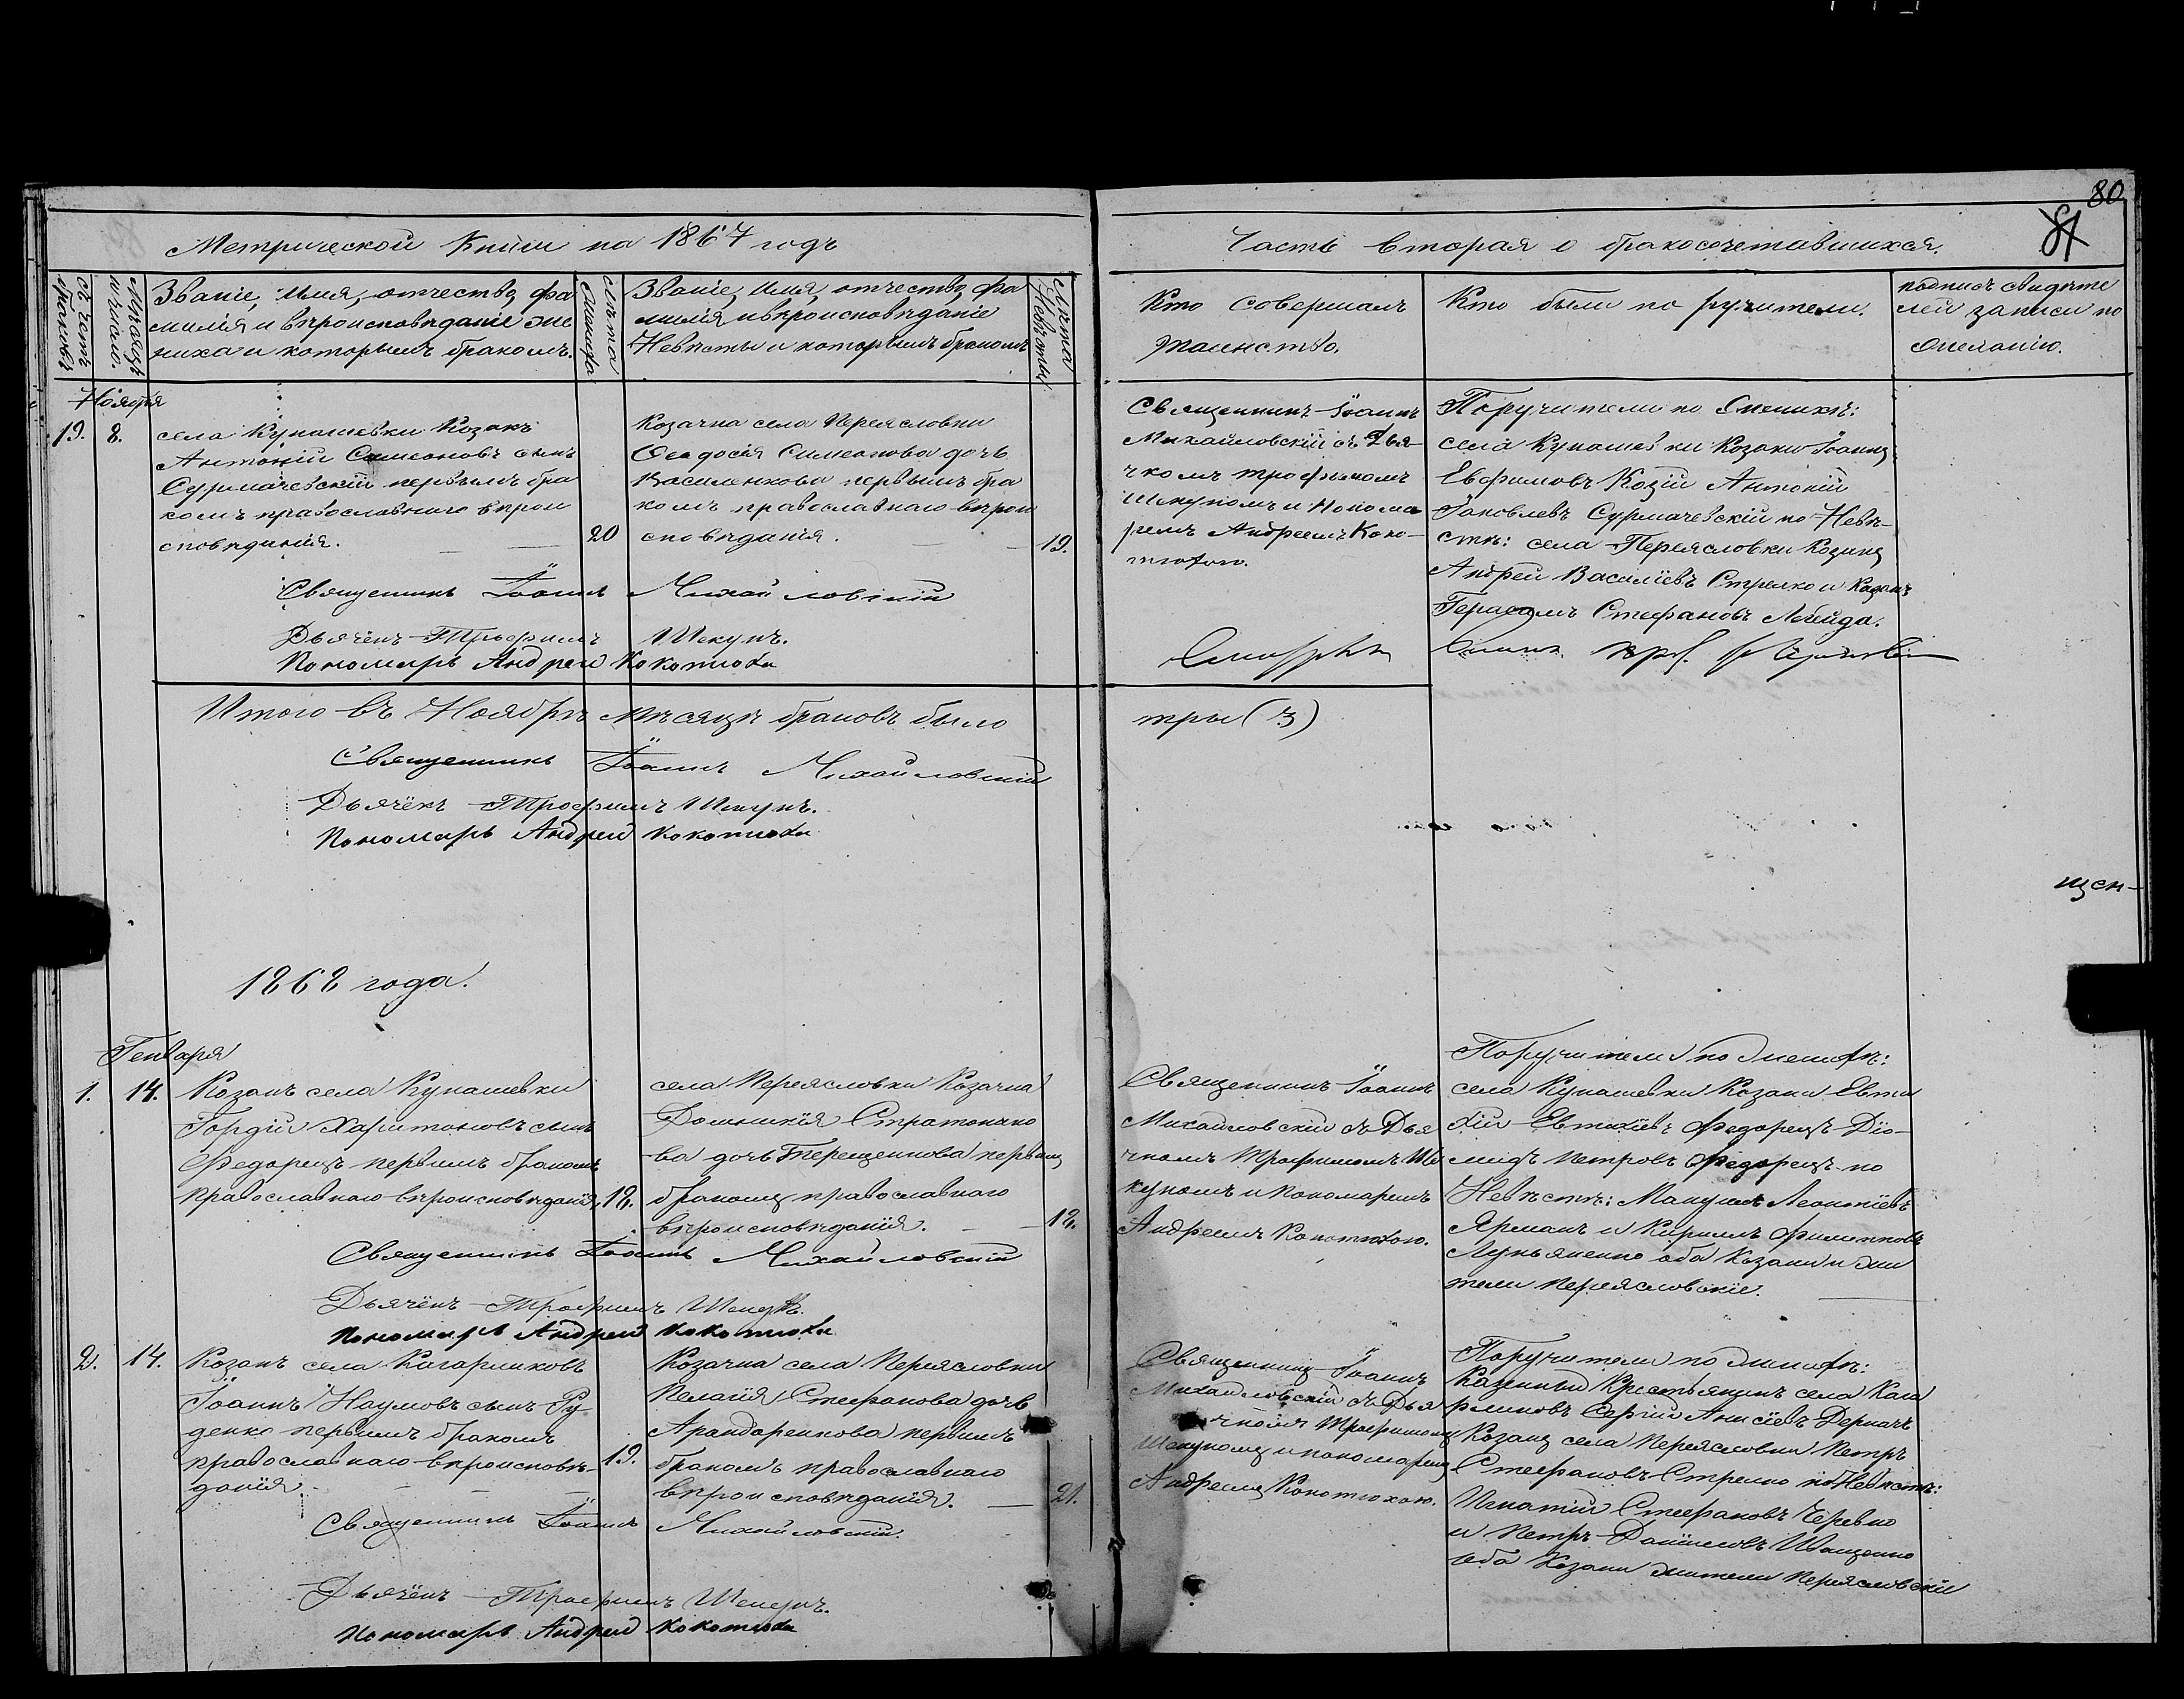 80
81
Метрической Книги на 1867 годъ
Счетъ браковъ.
Мѣсяцъ и число.
Званіе, имя, отчество, фа
милія и вѣроисповѣданіе же
ниха и которымъ бракомъ.
Лѣта жениха
Званіе, имя, отчество, фа
милія и вѣроисповѣданіе
Невѣсты и которымъ бракомъ
Лѣта Невѣсты
Часть вторая о бракосочетавшихся.
Кто совершалъ
таинство.
Кто были поручители.
подпись свидѣте
лей записи по
желанію.
Ноября
19. 8.
села Кунашевки Козакъ
Антоній Симеоновъ сынъ
Сурмачевскій первымъ бра
комъ православнаго вѣрои
сповѣданія.
20
Козачка села Переясловки
Ѳеодосія Симеонова дочь
Василенкова первымъ бра
комъ православнаго вѣрои
сповѣданія.
19.
Священникъ Іоаннъ
Михайловскій съ Дья-
чкомъ Трофимомъ
Шекуномъ и Понома
ремъ Андреемъ Коко-
тюхою.
Поручители по Женихѣ:
села Кунашевки Козаки Іоаннъ
Евфимовъ Козій Антоній
Іаковлевъ Сурмачевскій по Невѣ-
стѣ: села Переясловки Козакъ
Андрей Василіевъ Стрелко и Козакъ
Герасимъ Стефановъ Лобейда.
Священникъ Іоаннъ Михайловскій
Дьячёкъ Трофимъ Шекунъ.
Пономарь Андрей Кокотюха
Итого въ Ноябрѣ мѣсяцѣ браковъ было
три (3)
Священникъ Іоаннъ Михайловскій
Дьячёкъ Трофимъ Шекунъ.
Пономарь Андрей Кокотюха
щен-
1868 года.
Генваря
1. 14.
Козакъ села Кунашевки
Гордій Харитоновъ сынъ
Федорецъ первымъ бракомъ
православнаго вѣроисповѣданія,
18.
села Переясловки Козачка
Домникія Стратонико
ва дочь Терещенкова первымъ
бракомъ православнаго
вѣроисповѣданія.
18.
Священникъ Іоаннъ
Михайловскій съ Дья
чкомъ Трофимомъ Ше
куномъ и пономаремъ
Андреемъ Кокотюхою.
Поручители по Женихѣ:
села Кунашевки Козаки Евти
хій Евтихіевъ Федорецъ Діо-
мидъ Петровъ Федорецъ по
Невѣстѣ: Мануилъ Леонтіевъ
Ярмакъ и Кириллъ Филиповъ
Лукьяненко оба Козаки и жи
тели Переясловскіе.
Священникъ Іоаннъ Михайловскій
Дьячёкъ Трофимъ Шекунъ.
Пономарь Андрей Кокотюха
2. 14.
Козакъ села Кагарликовъ
Іоаннъ Наумовъ сынъ Ру
денко первымъ бракомъ
православнаго вѣроисповѣ-
данія.
19.
Козачка села Переясловки
Пелагія Стефанова дочь
Арандаренкова первымъ
бракомъ православнаго
вѣроисповѣданія.
21.
Священникъ Іоаннъ
Михайловскій съ Дья
чкомъ Трофимомъ
Шекуномъ и пономаремъ
Андреемъ Кокотюхою.
Поручители по Женихѣ:
Казенный Крестьянинъ села Кага
рликовъ Сергій Анисіевъ Деркачъ
Козакъ села Переясловки Петръ
Стефановъ Стрелко по Невѣстѣ:
Игнатій Стефановъ Черевко
и Петръ Даніиловъ Иващенко
оба Козаки жители Переясловскіе
Священникъ Іоаннъ Михайловскій.
Дьячёкъ Трофимъ Шекунъ.
Пономарь Андрей Кокотюха